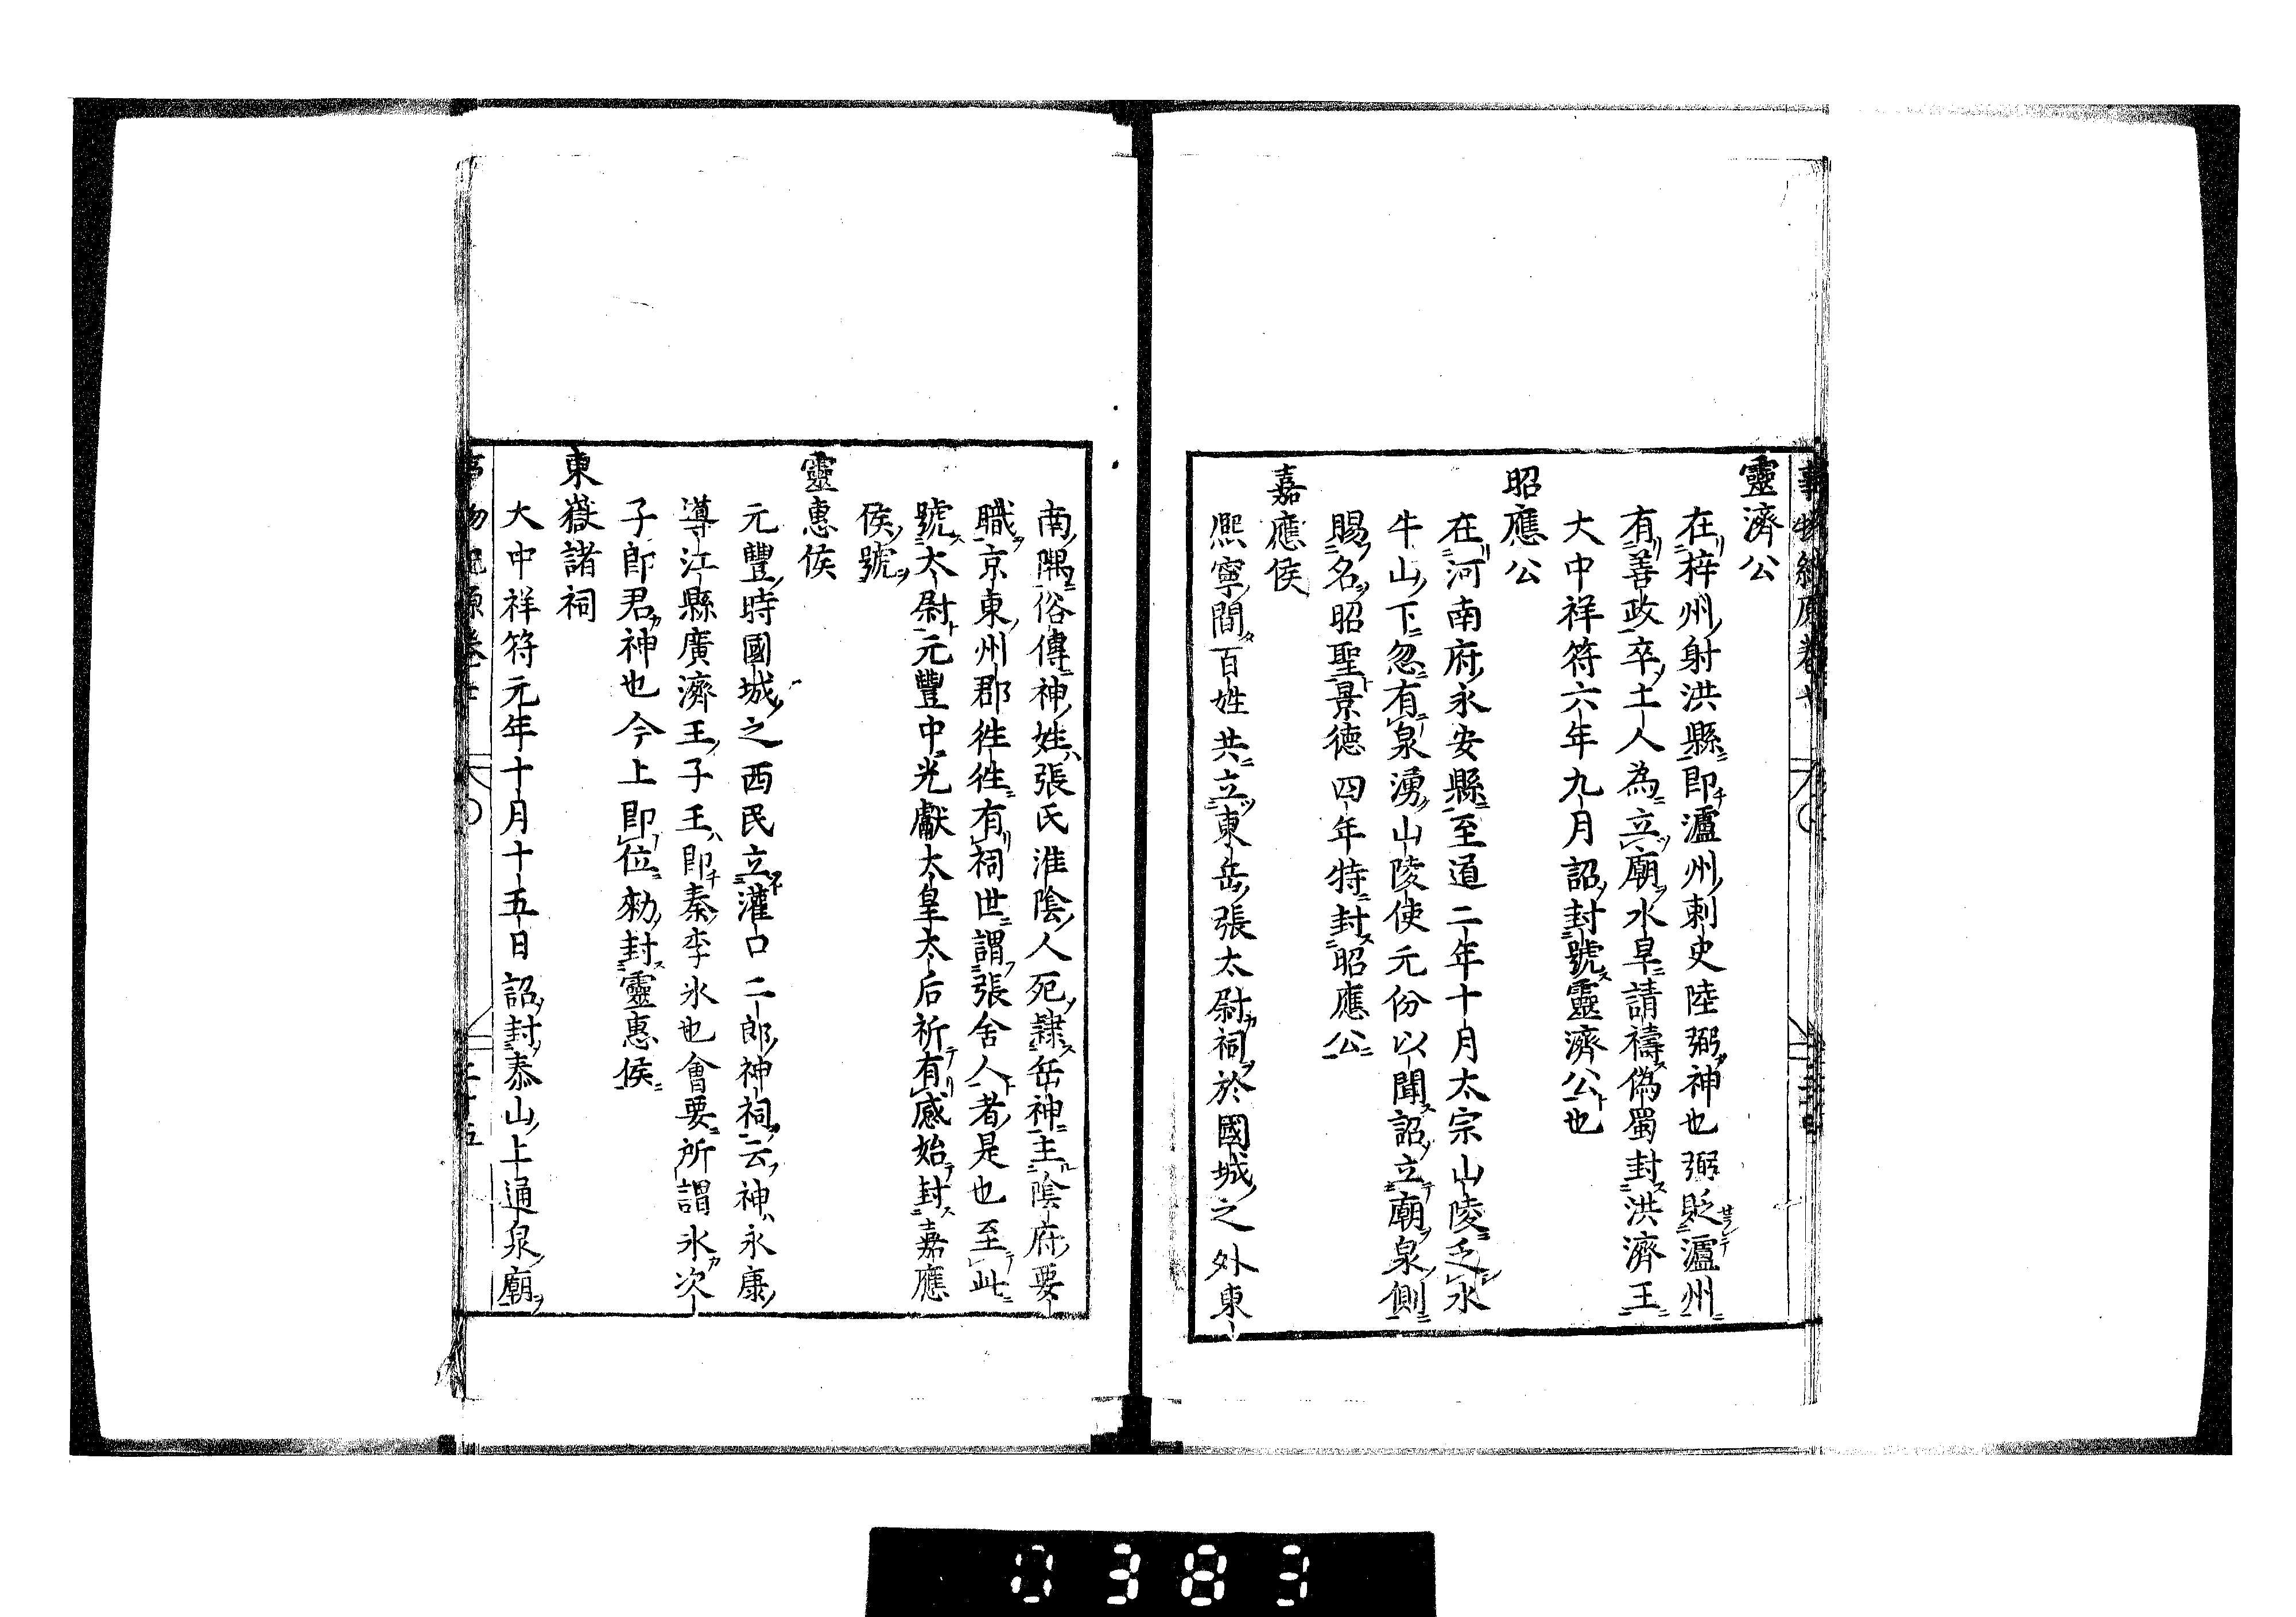 靈濟公
在梓州射洪縣即瀘州刺史陸弼神也弼貶瀘州
有善政卒土人為立廟水旱請禱偽蜀封洪濟王
大中祥符六年九月詔封號靈濟公也
昭應公
在河南府永安縣至道二年十月太宗山陵乏水
牛山下忽有泉湧山陵使元份以聞詔立廟泉側
賜名昭聖景德四年特封昭應公
嘉應侯
熈寧間百姓共立東岳張太尉祠於國城之外東
南隅俗傳神姓張氏淮陰人死隷岳神主陰府要
職京東州郡徃徃有祠世謂張舍人者是也至此
號太尉元豐中光獻太皇太后祈有感始封嘉應
侯號
靈惠侯
元豐時國城之西民立灌口二郎神祠云神永康
導江縣廣濟王子王即秦李氷也會要所謂氷次
子郎君神也今上即位勑封靈惠侯
東嶽諸祠
大中祥符元年十月十五日詔封泰山上通泉廟
0383